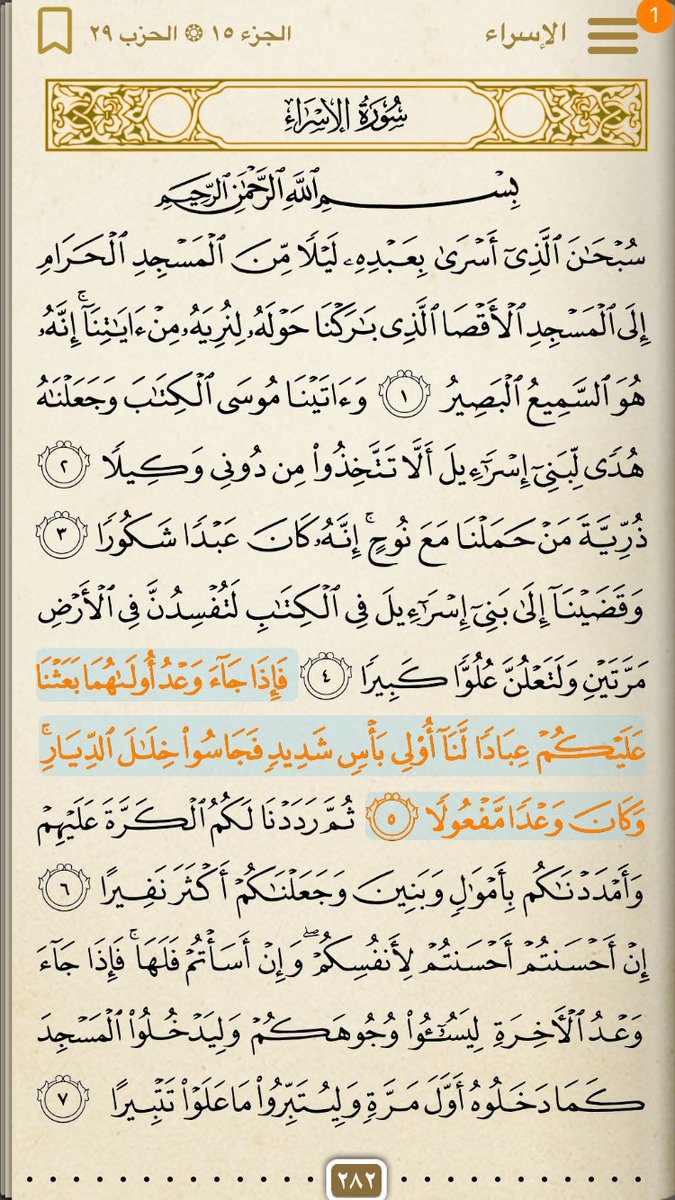 الإسراء الجزء ١٥ الحزب ٢٩ 1
سُورَةُ الإِسۡرَاءِ
بِسۡمِ ٱللَّهِ ٱلرَّحۡمَٰنِ ٱلرَّحِيمِ
سُبۡحَٰنَ ٱلَّذِيٓ أَسۡرَىٰ بِعَبۡدِهِۦ لَيۡلٗا مِّنَ ٱلۡمَسۡجِدِ ٱلۡحَرَامِ
إِلَى ٱلۡمَسۡجِدِ ٱلۡأَقۡصَا ٱلَّذِي بَٰرَكۡنَا حَوۡلَهُۥ لِنُرِيَهُۥ مِنۡ ءَايَٰتِنَآۚ إِنَّهُۥ
هُوَ ٱلسَّمِيعُ ٱلۡبَصِيرُ ١ وَءَاتَيۡنَا مُوسَى ٱلۡكِتَٰبَ وَجَعَلۡنَٰهُ
هُدٗى لِّبَنِيٓ إِسۡرَٰٓءِيلَ أَلَّا تَتَّخِذُواْ مِن دُونِي وَكِيلٗا ٢
ذُرِّيَّةَ مَنۡ حَمَلۡنَا مَعَ نُوحٍۚ إِنَّهُۥ كَانَ عَبۡدٗا شَكُورٗا ٣
وَقَضَيۡنَآ إِلَىٰ بَنِيٓ إِسۡرَٰٓءِيلَ فِي ٱلۡكِتَٰبِ لَتُفۡسِدُنَّ فِي ٱلۡأَرۡضِ
مَرَّتَيۡنِ وَلَتَعۡلُنَّ عُلُوّٗا كَبِيرٗا ٤ فَإِذَا جَآءَ وَعۡدُ أُولَىٰهُمَا بَعَثۡنَا
عَلَيۡكُمۡ عِبَادٗا لَّنَآ أُوْلِي بَأۡسٖ شَدِيدٖ فَجَاسُواْ خِلَٰلَ ٱلدِّيَارِۚ
وَكَانَ وَعۡدٗا مَّفۡعُولٗا ٥ ثُمَّ رَدَدۡنَا لَكُمُ ٱلۡكَرَّةَ عَلَيۡهِمۡ
وَأَمۡدَدۡنَٰكُم بِأَمۡوَٰلٖ وَبَنِينَ وَجَعَلۡنَٰكُمۡ أَكۡثَرَ نَفِيرًا ٦
إِنۡ أَحۡسَنتُمۡ أَحۡسَنتُمۡ لِأَنفُسِكُمۡۖ وَإِنۡ أَسَأۡتُمۡ فَلَهَاۚ فَإِذَا جَآءَ
وَعۡدُ ٱلۡأٓخِرَةِ لِيَسُـُٔواْ وُجُوهَكُمۡ وَلِيَدۡخُلُواْ ٱلۡمَسۡجِدَ
كَمَا دَخَلُوهُ أَوَّلَ مَرَّةٖ وَلِيُتَبِّرُواْ مَا عَلَوۡاْ تَتۡبِيرًا ٧
٢٨٢